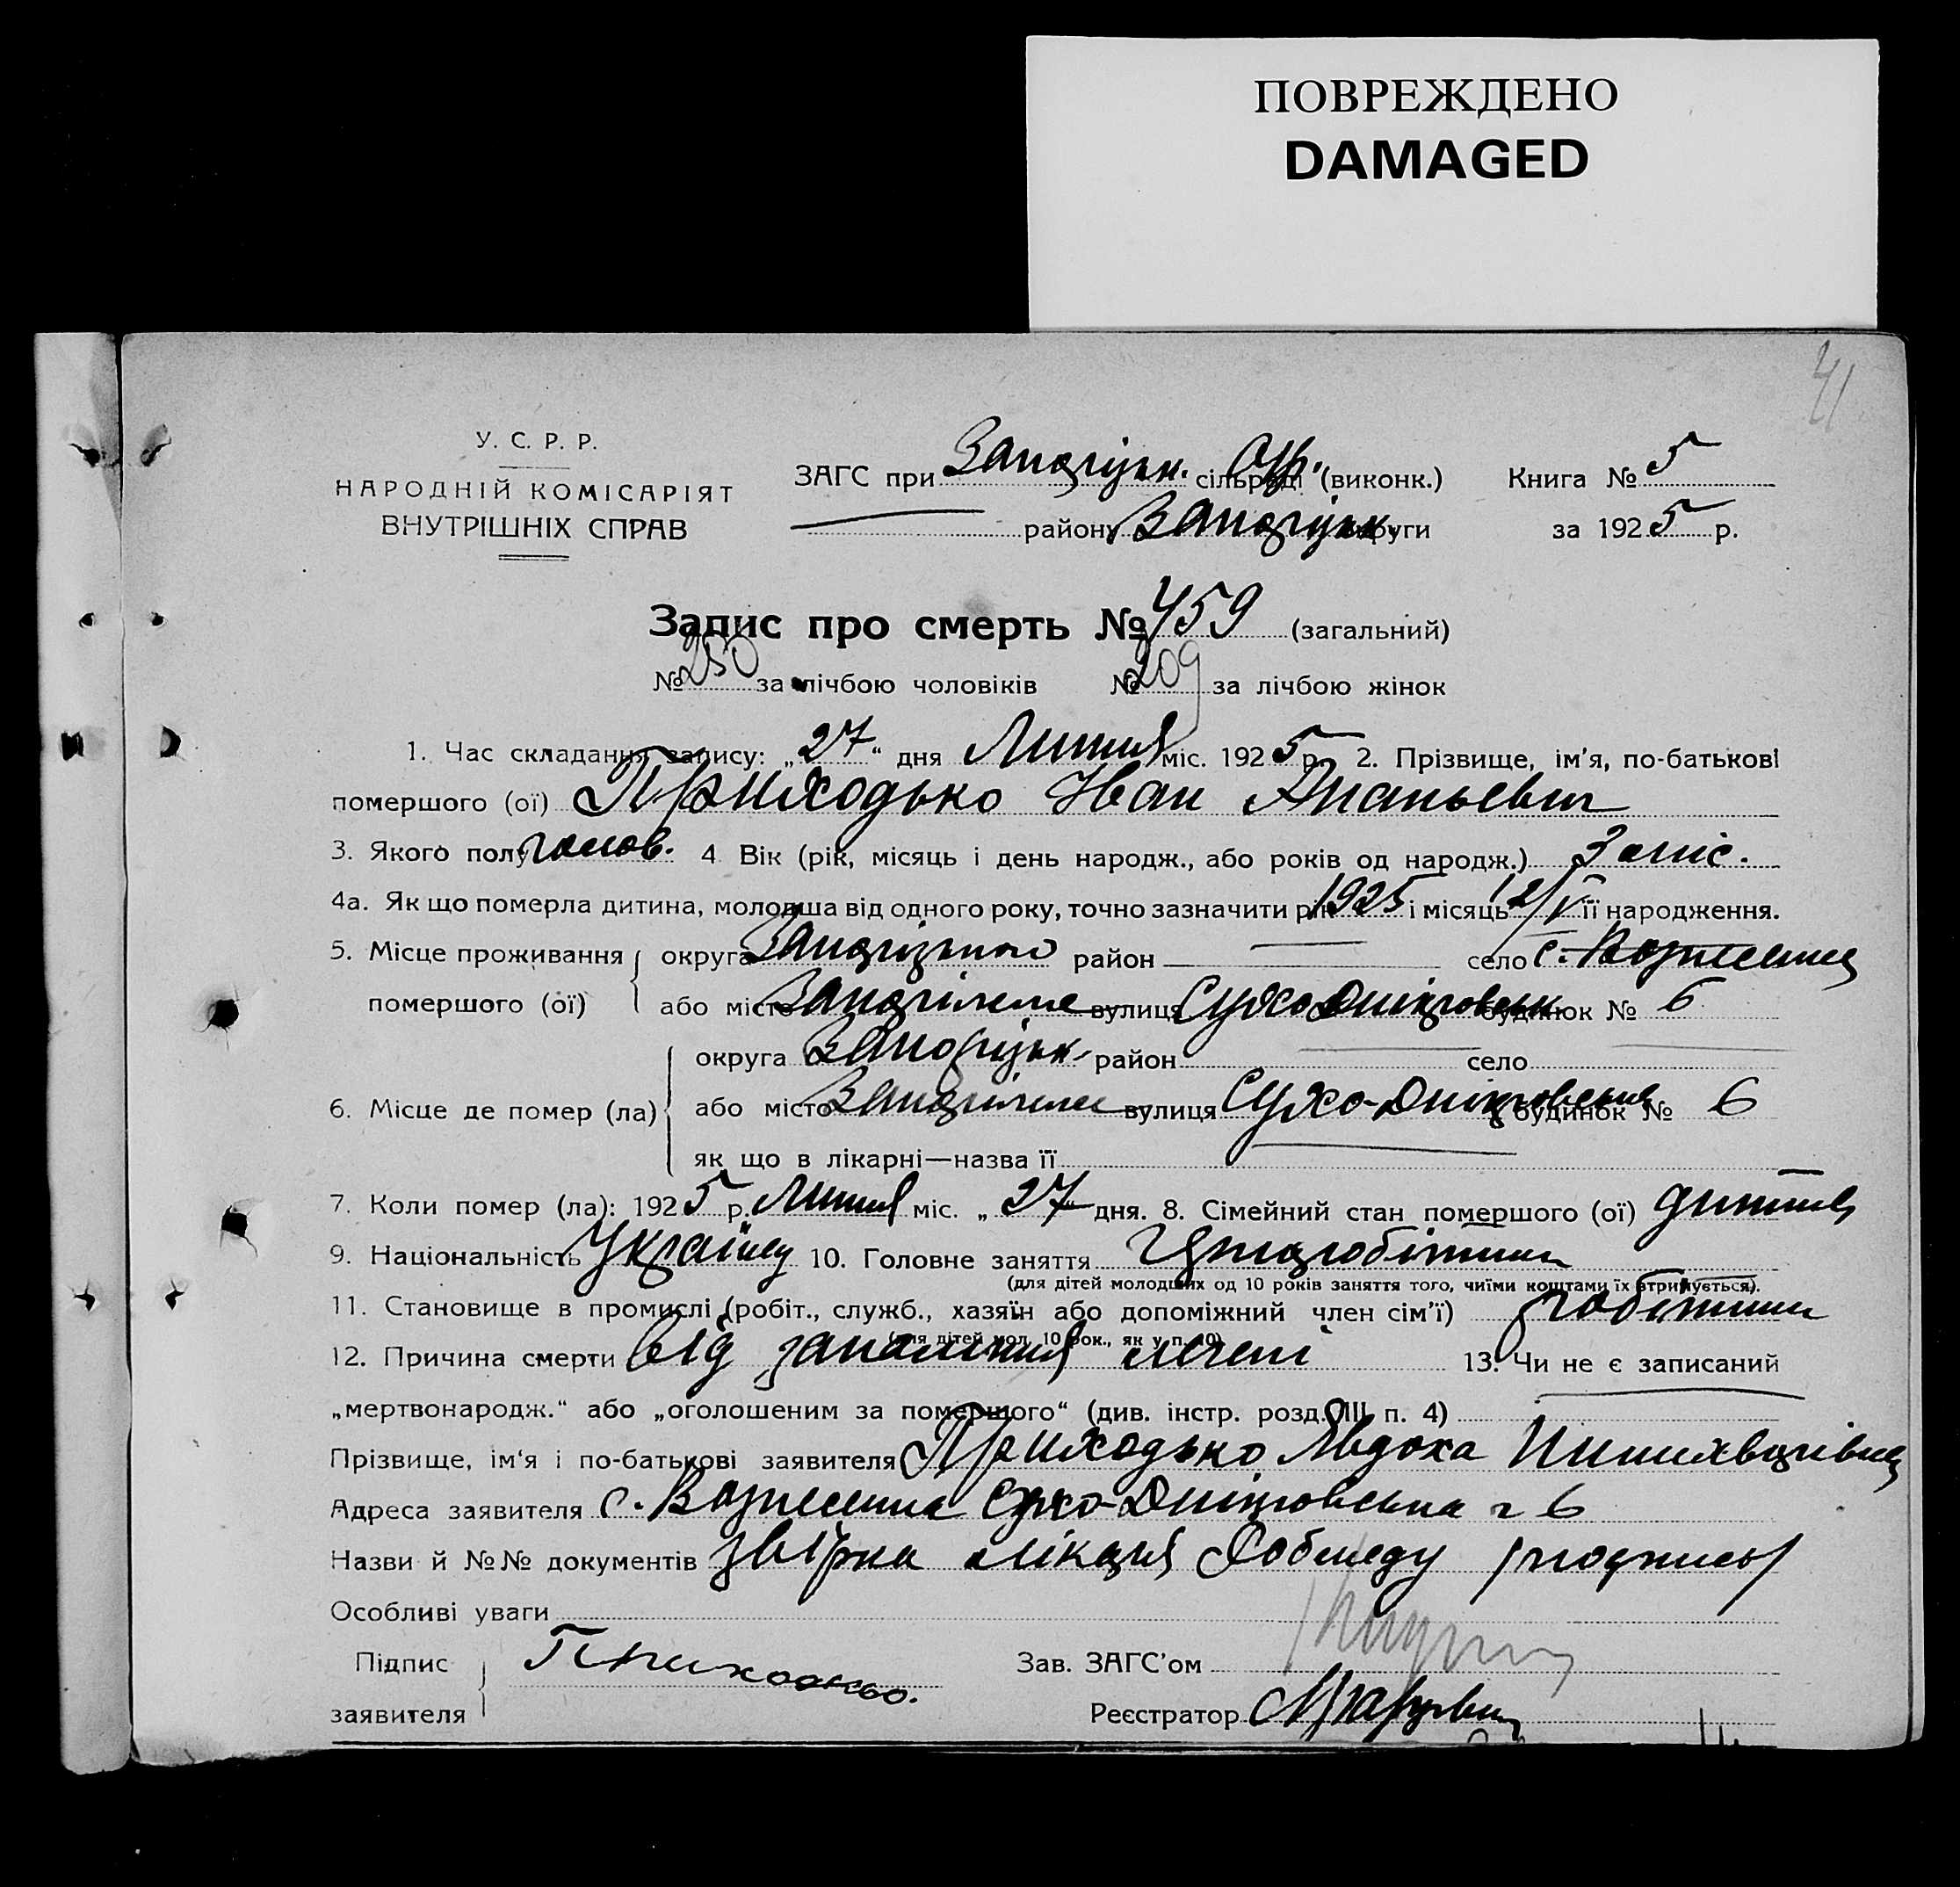 ПОВРЕЖДЕНО
DAMAGED
41
У. С. Р. Р.
НАРОДНІЙ КОМІСАРІЯТ
ВНУТРІШНІХ СПРАВ
ЗАГС при Запоріzьк. Окр. сільраді (виконк.) Книга № 5
району Запорізьк. округи за 1925 р.
Запис про смерть № 459 (загальний)
№ 250 за лічбою чоловіків № 209 за лічбою жінок
1. Час складання запису: „27“ дня Липня міс. 1925 р. 2. Прізвище, ім'я, по-батькові
помершого (ої) Приходько Іван Ананьевич
3. Якого полу чолов. 4 Вік (рік, місяць і день народж., або років од народж.) 3 міс.
4а. Як що померла дитина, молодша від одного року, точно зазначити рік 1925 і місяць 12/V її народження.
5. Місце проживання округа район село с. Вознесенка
помершого (ої) або місто Запоріжже вулиця Сухо Дніпровськ. будинок № 6
округа Запорізьк. район село
6. Місце де помер (ла) або місто Запоріжже вулиця Сухо-Дніпровська будинок № 6
як що в лікарні—назва її
7. Коли помер (ла): 1925 р. Липня міс. „27“ дня. 8. Сімейний стан помершого (ої) дитина
9. Національність Україн. 10. Головне заняття
(для дітей молодших од 10 років заняття того, чиїми коштами їх втримується).
11. Становище в промислі (робіт., служб., хазяїн або допоміжний член сім'ї) робітник
(для дітей мол. 10 рок., як у п. 10)
12. Причина смерти від запалення легені 13. Чи не є записаний
„мертвонародж.“ або „оголошеним за помершого“ (див. інстр. розд. III п. 4)
Прізвище, ім'я і по-батькові заявителя Приходько Явдоха
Адреса заявителя с. Вознесенка Сухо-Дніпровська 6
Назви й №№ документів лікаря
Особливі уваги
Підпис Приходько. Зав. ЗАГС'ом
заявителя Реєстратор